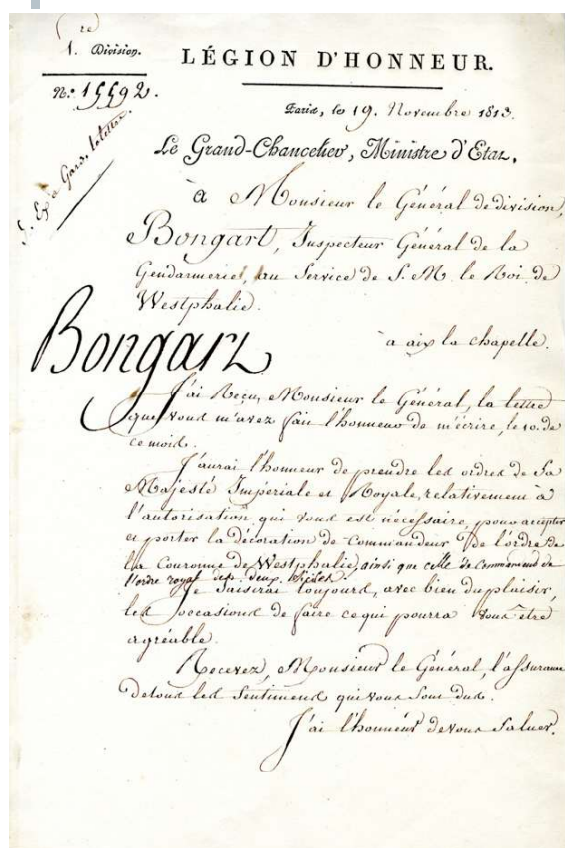 1.re Division.
LÉGION D'HONNEUR.
N.o 15592.
Paris, le 19. Novembre 1813.
Le Grand-Chancelier, Ministre d'Etat,
à Monsieur le Général de division,
Bongart, Inspecteur Général de la
Gendarmerie, au Service de S. M. le Roi de
Westphalie.
à aix la chapelle.
Bongart
J'ai Reçu, Monsieur le Général, la lettre
que vous m'avez fait l'honneur de m'écrire, le 10. de
ce mois.
J'aurai l'honneur de prendre les ordres de Sa
Majesté Impériale et Royale, relativement à
l'autorisation qui vous est nécessaire, pour accepter
et porter la décoration de Commandeur de l'ordre de
la Couronne de Westphalie, ainsi que celle de Commandeur de
l'ordre royal des deux Siciles.
Je Saisirai toujours, avec bien du plaisir,
les occasions de faire ce qui pourra vous être
agréable.
Recevez, Monsieur le Général, l'assurance
de tous les Sentimens qui vous Sont dus.
J'ai l'honneur de vous Saluer.